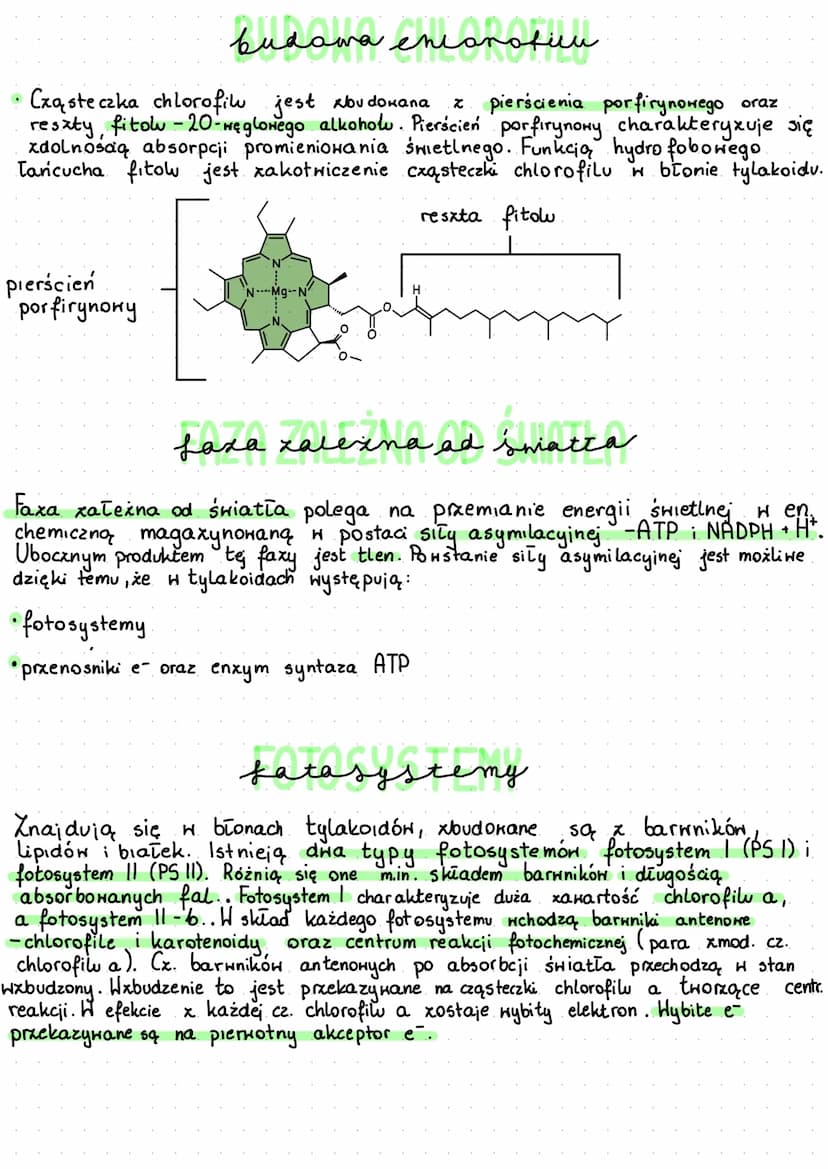 BUDOWA CHLOROFILU
budowa chlorofilu
• Cząsteczka chlorofilu jest zbudowana z pierścienia porfirynowego oraz
reszty fitolu – 20-węglowego alkoholu. Pierścień porfirynowy charakteryzuje się
zdolnością absorpcji promieniowania świetlnego. Funkcją hydrofobowego
łańcucha fitolu jest zakotwiczenie cząsteczki chlorofilu w błonie tylakoidu.
reszta fitolu
pierścień
porfirynowy
N
N Mg N
N
H
O
O
O
O
FAZA ZALEŻNA OD ŚWIATŁA
faza zależna od światła
Faza zależna od światła polega na przemianie energii świetlnej w en.
chemiczną magazynowaną w postaci siły asymilacyjnej – ATP i NADPH + H⁺.
Ubocznym produktem tej fazy jest tlen. Powstanie siły asymilacyjnej jest możliwe
dzięki temu, że w tylakoidach występują:
• fotosystemy
• przenosniki e⁻ oraz enzym syntaza ATP
FOTOSYSTEMY
fotosystemy
Znajdują się w błonach tylakoidów, zbudowane są z barwników,
lipidów i białek. Istnieją dwa typy fotosystemów fotosystem I (PS I) i
fotosystem II (PS II). Różnią się one m.in. składem barwników i długością
absorbowanych fal.. Fotosystem I charakteryzuje duża zawartość chlorofilu a,
a fotosystem II - b.. W skład każdego fotosystemu wchodzą barwniki antenowe
– chlorofile i karotenoidy oraz centrum reakcji fotochemicznej (para zmod. cz.
chlorofilu a). Cz. barwników antenowych po absorbcji światła przechodzą w stan
wzbudzony. Wzbudzenie to jest przekazywane na cząsteczki chlorofilu a tworzące centr.
reakcji. W efekcie z każdej cz. chlorofilu a zostaje wybity elektron. Wybite e⁻
przekazywane są na pierwotny akceptor e⁻.